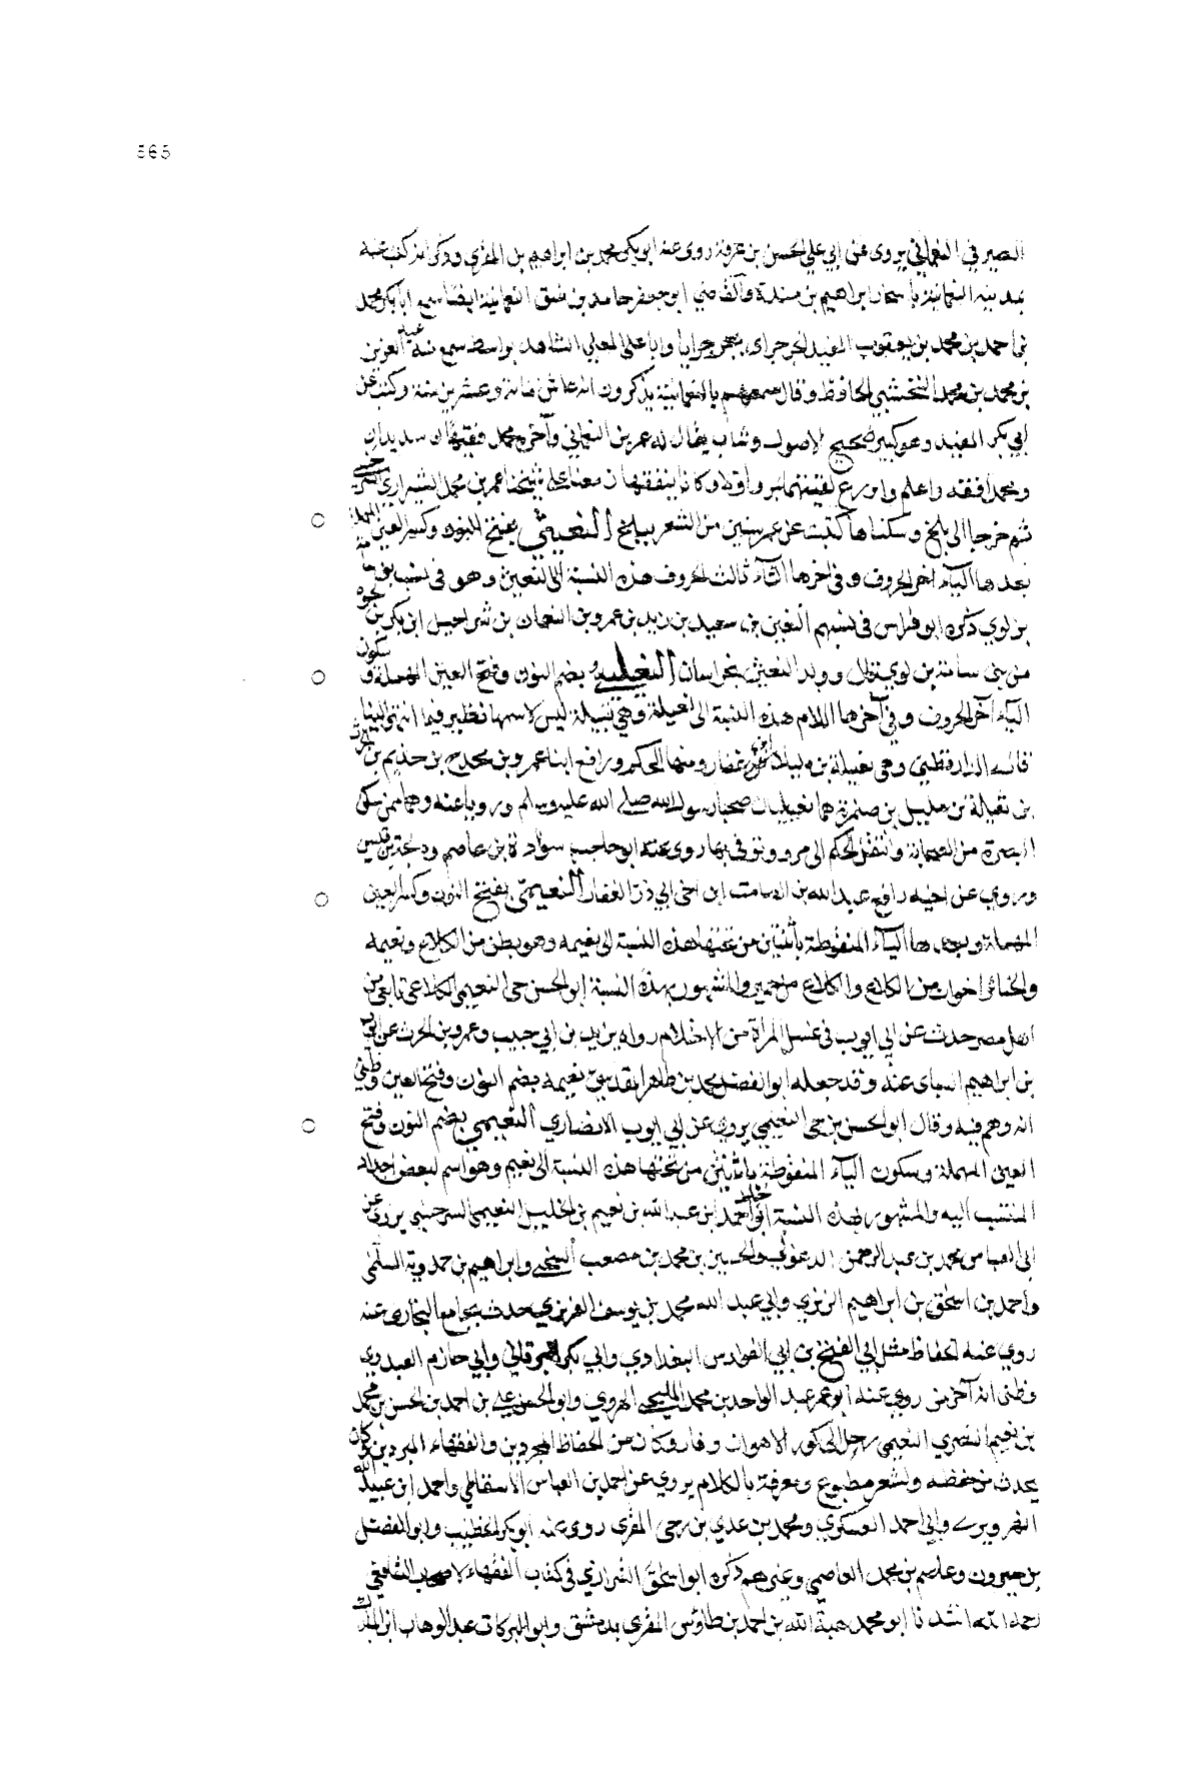 565
الصيرفي النعماني يروي عن ابي علي الحسن بن عرفة روى عنه ابو بكر محمد بن ابراهيم بن المقرئ وذكر انه كتب عنه
بمدينة النعمانية باسحار ابراهيم بن مندة والقاضي ابو جعفر حامد بن شق النعمانية ايضا سمع ابا بكر محمد
بن احمد بن محمد بن يعقوب المفيد الجرجراى بجرجرايا وابا علي المعلى الشاهد بواسط سمع منه عبد العزيز
بن محمد بن محمد النخشبي الحافظ وقال سمعتهم بالنعمانية يذكرون انه عاش مائة وعشرين سنة وكتب عن
ابي بكر المفيد وهو كبير صحيح الاصول وشاب يقال له عمر بن النعماني وآخر محمد فقيهان سديدان
ومحمد افقه واعلم واورع لقيتهما بمرو اولا وكانا يتفقهان معنا على شيخنا عمر بن محمد الشيرازي السرخسي
ثم خرجا الى بلخ وسكناها كتبت عن عمر بيتين من الشعر ببلخ النعيثي بفتح النون وكسر العين المهملة
بعدها الياء اخر الحروف وفي اخرها الثاء ثالث الحروف هذه النسبة الى النعيث وهو في نسب
بن لوي ذكره ابو فراس في نسبهم النعيث بن سعيد بن زيد بن عمرو بن النعمان بن شراحيل ابن بكر بن
من بني سامة بن لوي قال وولد النعيث بخراسان النعيلي بضم النون وفتح العين المهملة وسكون
الياء آخر الحروف وفي آخرها اللام هذه النسبة الى نعيلة وهي قبيلة ليس لاسمها نظير فيما انتهى الينا
قاله الدارقطني وهي نعيلة بن مليل اخو غفار ومنها الحكم ورافع ابنا عمرو بن مجدع بن حذيم بن
بن نعيلة بن مليل بن ضمرة هما نعيليان صحبا رسول الله صلى الله عليه وسلم ورويا عنه وهما ممن سكن
البصرة من الصحابة وانتقل الحكم الى مرو وتوفي بها روى عنه ابو حاجب سوادة بن عاصم ودلجة بن قيس
وروي عن اخيه رافع عبد الله بن الصامت ابن اخي ابي ذر الغفاري النعيمي بفتح النون وكسر العين
المهملة وبعدها الياء المنقوطة باثنتين من تحتها هذه النسبة الى نعيمة وهو بطن من الكلاع ونعيمة
والخبائر اخوان من الكلاع والكلاع من حمير والمشهور بهذه النسبة ابو الحسن حى النعيمي الكلاعي تابعي من
اهل مصر حدث عن ابي ايوب في غسل المراة من الاحتلام رواه يزيد بن ابي حبيب وعمرو بن الحرث عن ابي
بن ابراهيم السباى عنه وقد جعله ابو الفضل محمد بن طاهر المقدسي نعيمة بضم النون وفتح العين وظني
انه وهم فيه وقال ابو الحسن بن حى النعيمي يروي عن ابي ايوب الانصاري النعيمي بضم النون وفتح
العين المهملة وسكون الياء المنقوطة باثنتين من تحتها هذه النسبة الى نعيم وهو اسم لبعض اجداد
المنتسب اليه والمشهور بهذه النسبة ابو حامد احمد ابن عبد الله بن نعيم بن الخليل النعيمي السرخسي يروي عن
ابي العباس محمد بن عبد الرحمن الدغولي والحسين بن محمد بن مصعب السنجي وابراهيم بن حمدويه السلمي
واحمد بن اسحق بن ابراهيم الززي وابي عبد الله محمد بن يوسف الفربري حدث بجامع البخاري عنه
روي عنه الحفاظ مثل ابي الفتح بن ابي الفوارس البغدادي وابي بكر البرقاني وابي حازم العبدوي
وظني انه آخر من روي عنه ابو عمر عبد الواحد بن محمد المليحي الهروي وابو الحسن علي بن احمد بن الحسن بن محمد
بن نعيم البصري النعيمي رحل الى كور الاهواز وفارس وكان من الحفاظ المجردين والفقهاء المبرزين وكان
يحدث من حفظه وله شعر مطبوع ومعرفة بالكلام يروي عن احمد بن العباس الاسفاطي واحمد ابن عبيد الله
النهرديري وابي احمد العسكري ومحمد بن عدي بن زحر المقرى روى عنه ابو بكر الخطيب وابو الفضل
بن خيرون وعاصم بن محمد العاصمي وغيرهم ذكره ابو اسحق الشيرازي في كتاب الفقهاء لاصحاب الشافعي
رحمه الله انشدنا ابو محمد هبة الله بن احمد بن طاوس المقري بدمشق وابو البركات عبد الوهاب ابن المبارك